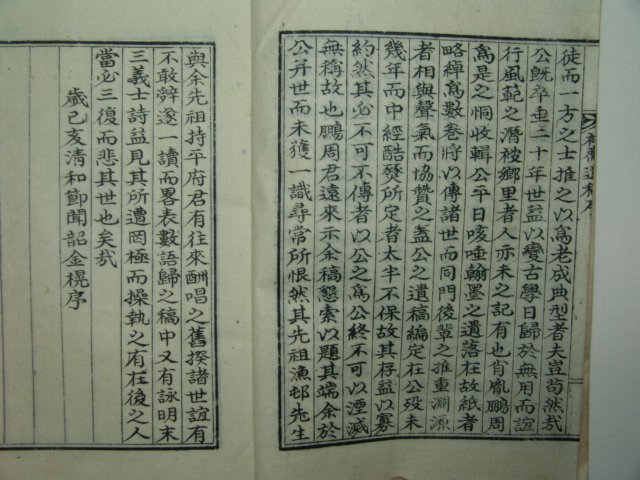 徒而一方之士推之以爲老成典型者夫豈苟然哉
公旣卒垂二十年世益以變古學日歸於無用而誼
行風範之潛被鄕里者人亦未之記有也肖胤鵬周
爲是之恫收輯公平日咳唾翰墨之遺落在故紙者
略繕寫數卷將以傳諸世而同門後輩之推重淵源
者相與聲氣而協贊之蓋公之遺稿編定在公歿未
幾年而中經酷發所定者太半不保故其存益以寡
約然其必不可不傳者以公之爲公終不可以湮滅
無稱故也鵬周君遠來示余稿懇索以題其端余於
公幷世而未獲一識尋常所恨然其先祖漁邨先生
與余先祖持平府君有往來酬唱之舊揆諸世誼有
不敢辭遂一讀而畧表數語歸之稿中又有詠明末
三義士詩益見其所遭罔極而操執之有在後之人
當必三復而悲其世也矣哉
歲己亥淸和節聞韶金榥序